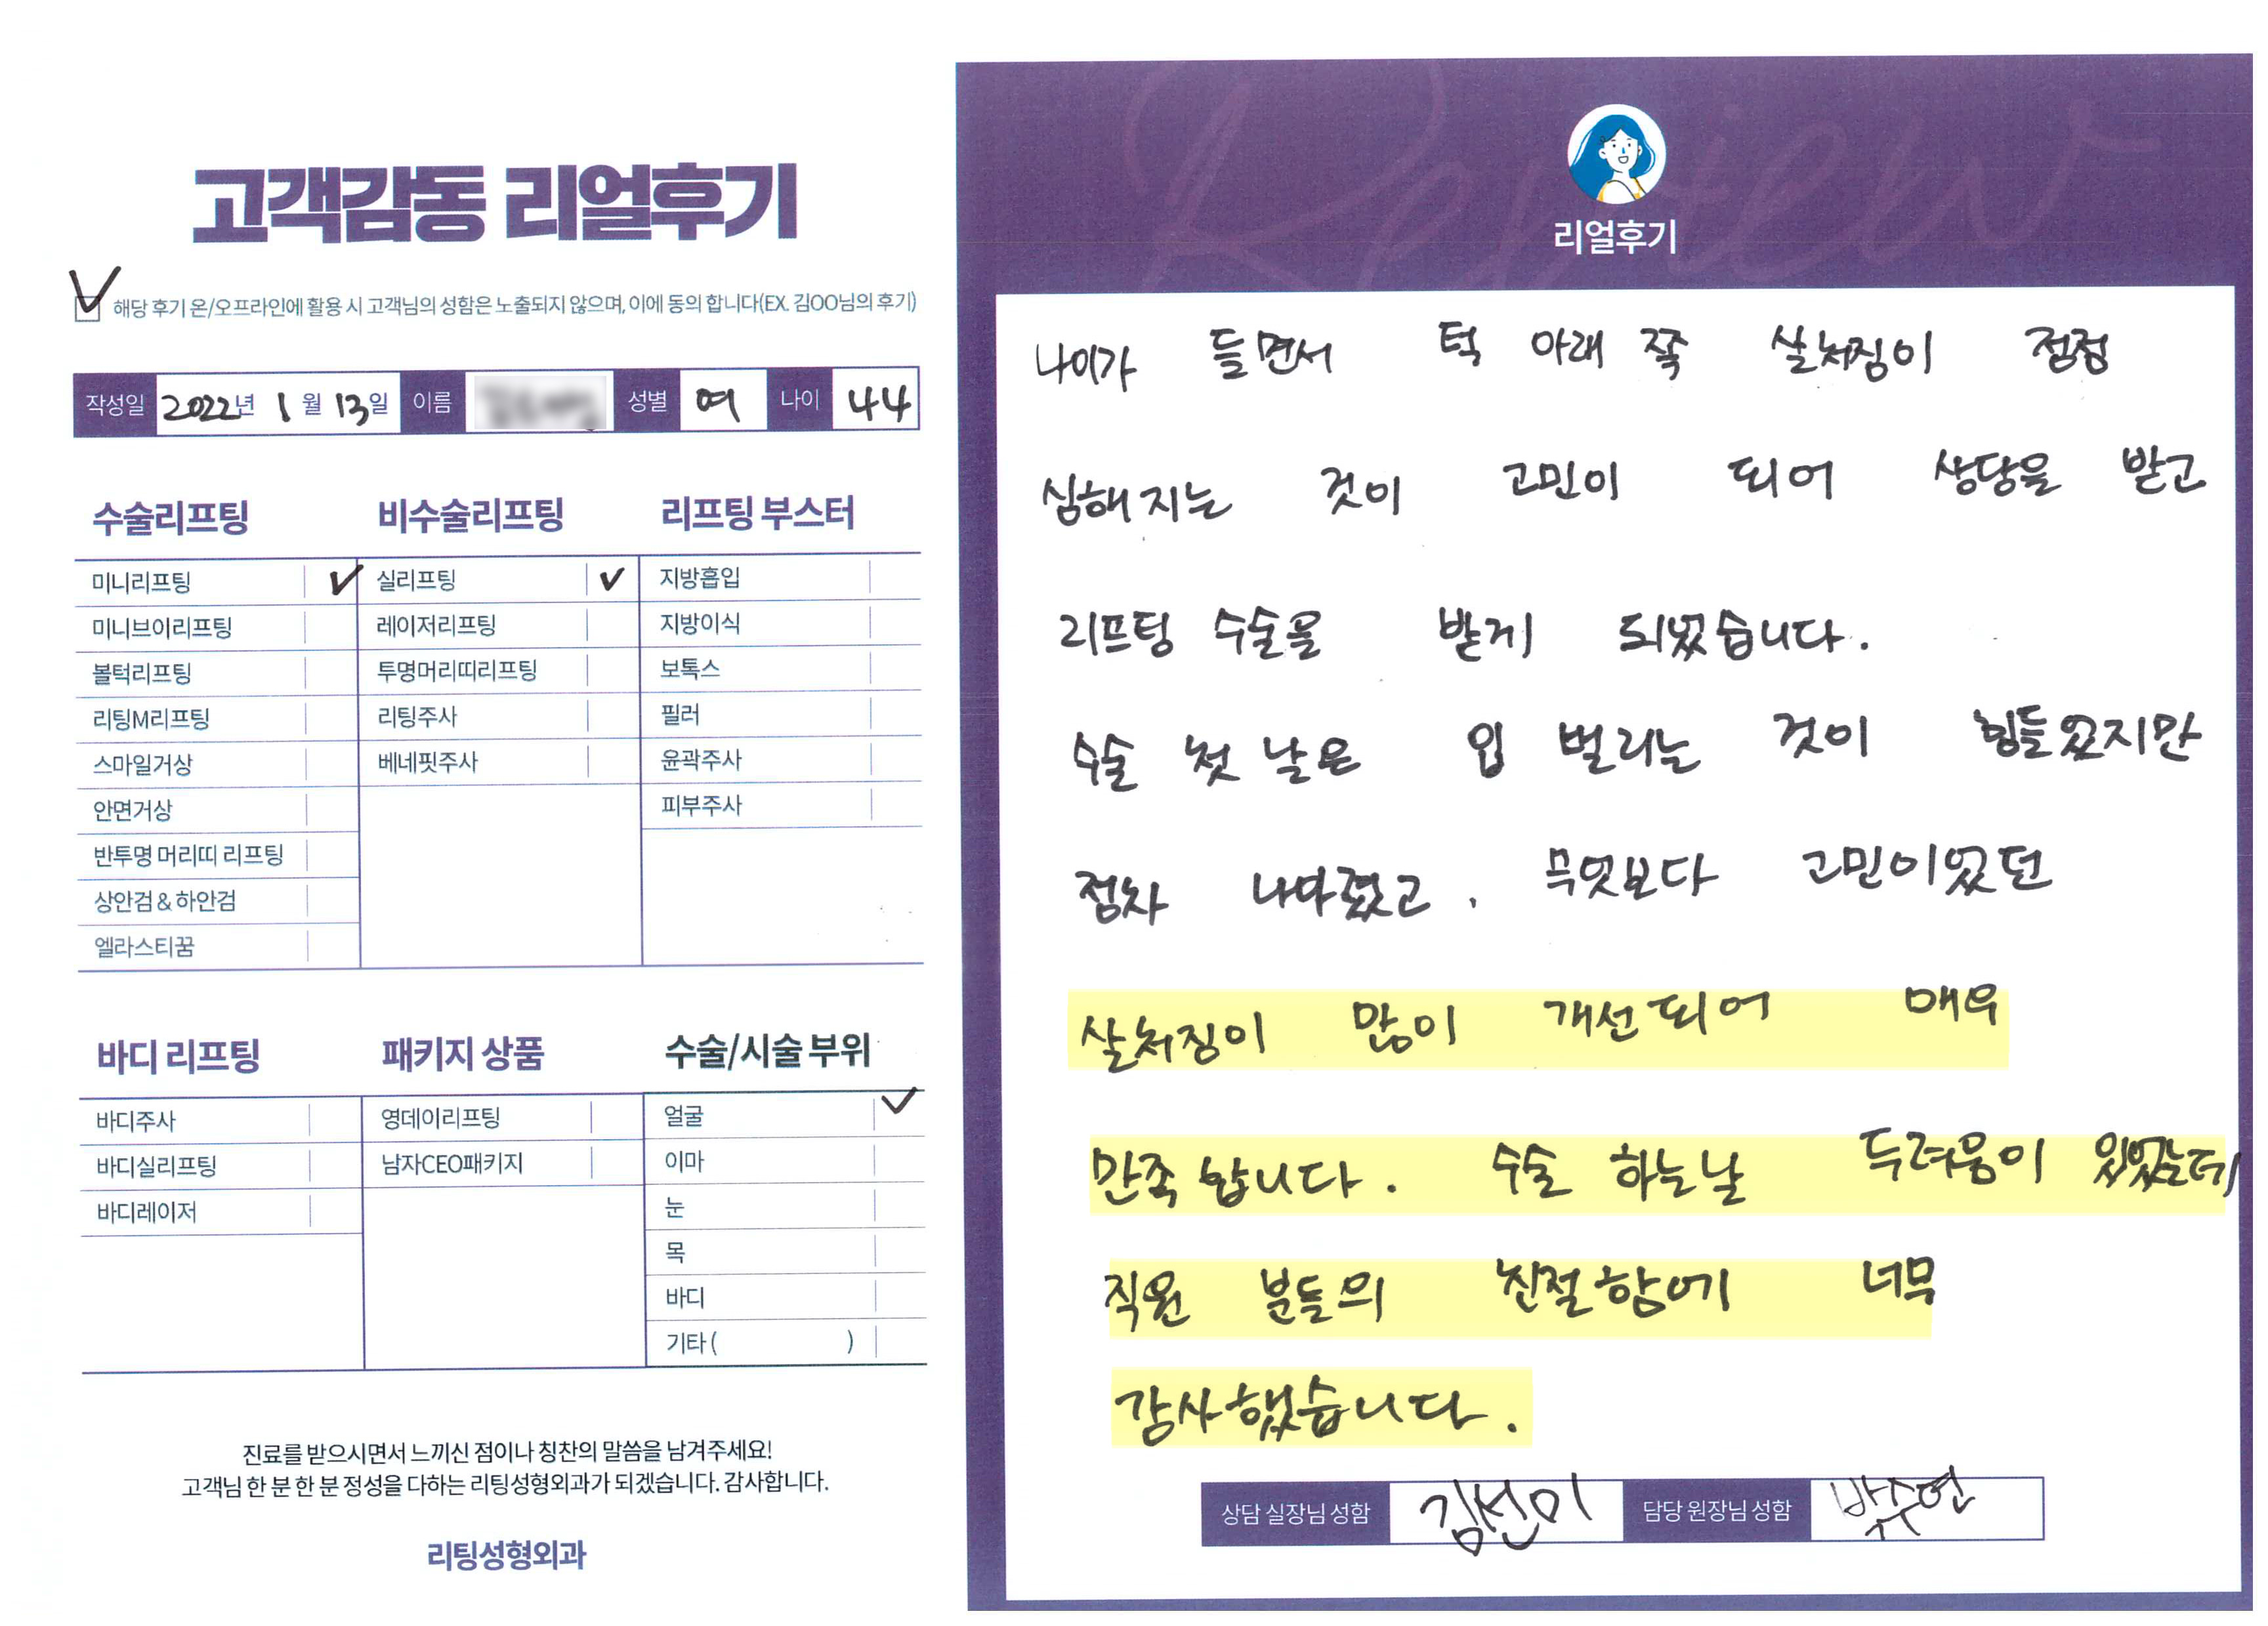 고객감동 리얼후기
해당 후기 온/오프라인에 활용 시 고객님의 성함은 노출되지 않으며, 이에 동의 합니다(EX. 김OO님의 후기)
작성일 2022년 1월 13일 이름 성별 여 나이 44
수술리프팅
미니리프팅
미니브이리프팅
볼턱리프팅
리팅M리프팅
스마일거상
안면거상
반투명 머리띠 리프팅
상안검 & 하안검
엘라스티꿈
비수술리프팅
실리프팅
레이저리프팅
투명머리띠리프팅
리팅주사
베네핏주사
리프팅 부스터
지방흡입
지방이식
보톡스
필러
윤곽주사
피부주사
바디 리프팅
바디주사
바디실리프팅
바디레이저
패키지 상품
영데이리프팅
남자CEO패키지
수술/시술 부위
얼굴
이마
눈
목
바디
기타 ( )
진료를 받으시면서 느끼신 점이나 칭찬의 말씀을 남겨주세요!
고객님 한 분 한 분 정성을 다하는 리팅성형외과가 되겠습니다. 감사합니다.
리팅성형외과
Review
리얼후기
나이가 들면서 턱 아래 쪽 살처짐이 점점
심해 지는 것이 고민이 되어 상담을 받고
리프팅 수술을 받게 되었습니다.
수술 첫 날은 입 벌리는 것이 힘들었지만
점차 나아졌고, 무엇보다 고민이었던
살처짐이 많이 개선되어 매우
만족 합니다. 수술 하는날 두려움이 있었는데
직원 분들의 친절함에 너무
감사했습니다.
상담 실장님 성함 김선미 담당 원장님 성함 박수연